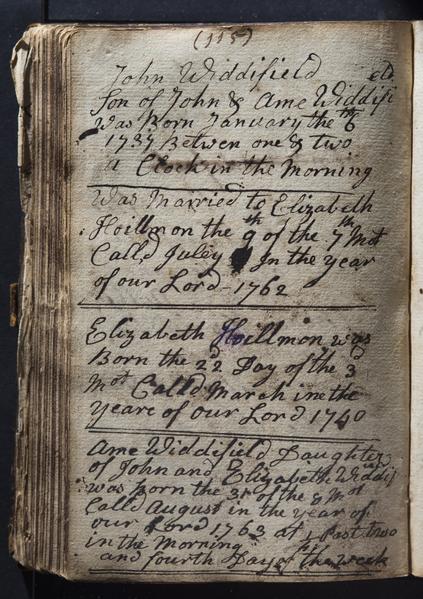 (115)
John Widdifield
Son of John & Ame Widdifield
Was Born January the 6th
1737 Betwen one & two
a Clock in the Morning
Was Married to Elizabeth
Hoillmon the 9th of the 7th Mot
Calld Juley In the year
of our Lord - 1762
Elizabeth Hoillmon was
Born the 22d Day of the 3
Mot Calld March in the
yeare of Our Lord 1740
Ame Widdifield Daughter
of John and Elizabeth Widdifield
was Born the 31 of the 8 Mot
Calld August in the year of
our Lord 1763 at Past two
in the Morning
and fourth Day of the week